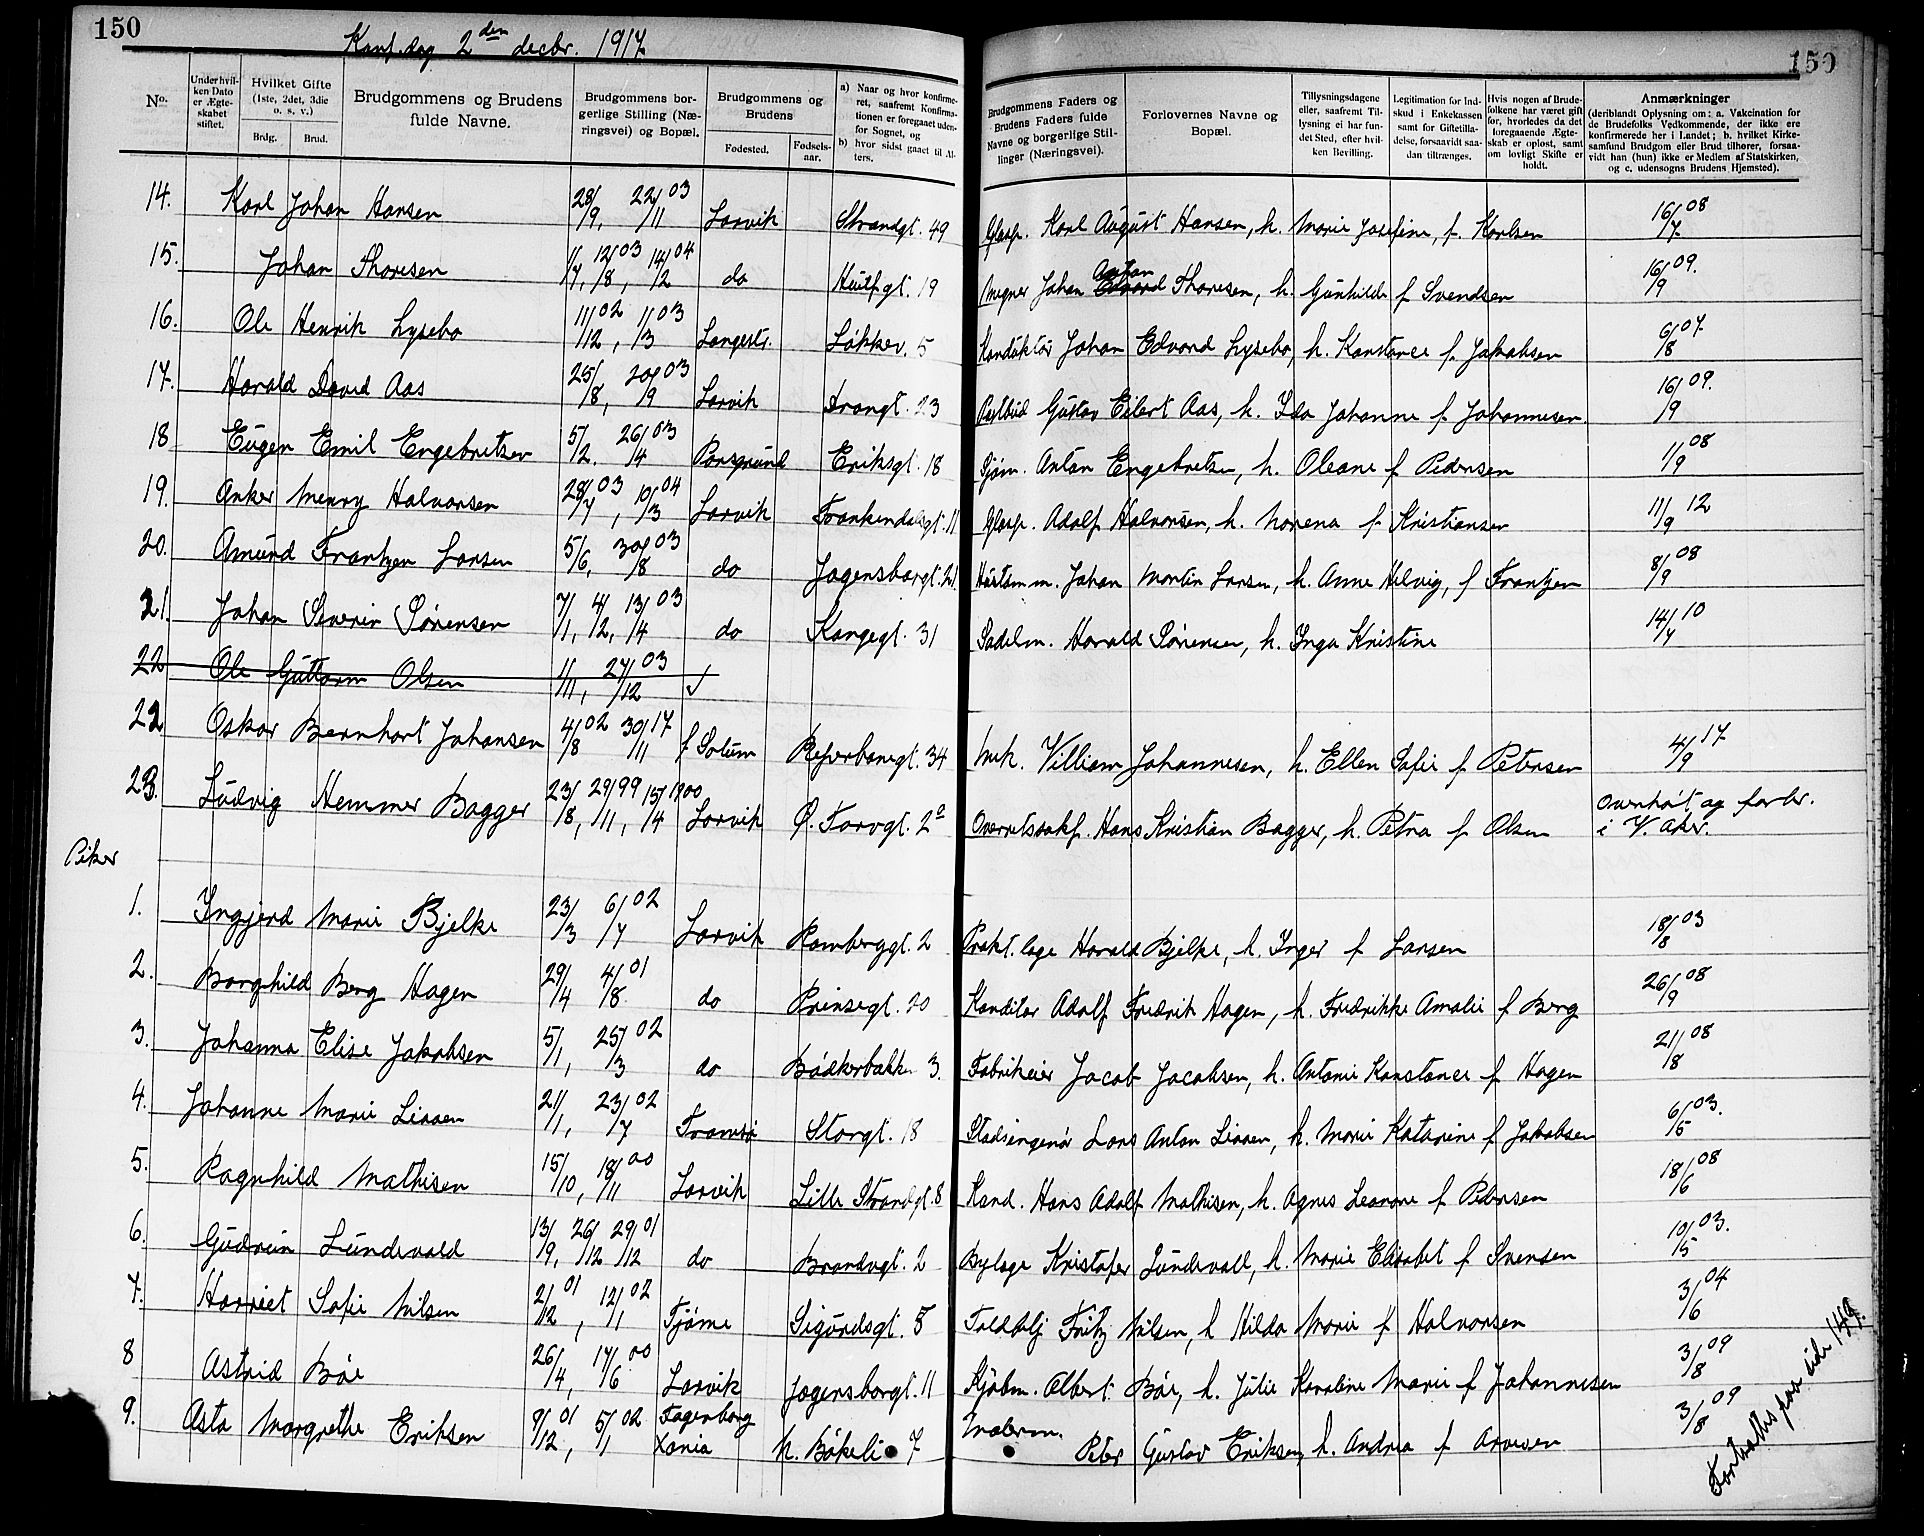 150
Konf.dag 2den decbr. 1917
150
No.
Under hvilken Dato er Ægteskabet stiftet.
Hvilket Gifte (1ste, 2det, 3die o. s. v.)
Brdg.
Brud.
Brudgommens og Brudens fulde Navne.
Brudgommens borgerlige Stilling (Næringsvei) og Bopæl.
Brudgommens og Brudens
Fødested.
Fødselsaar.
a) Naar og hvor konfirmeret, saafremt Konfirmationen er foregaaet udenfor Sognet, og
b) hvor sidst gaaet til Alters.
Brudgommens Faders og Brudens Faders fulde Navne og borgerlige Stillinger (Næringsvei).
Forlovernes Navne og Bopæl.
Tillysningsdagene eller, saafremt Tillysning ei har fundet Sted, efter hvilken Bevilling.
Legitimation for Indskud i Enkekassen samt for Giftetilladelse, forsaavidt saadan tiltrænges.
Hvis nogen af Brudefolkene har været gift før, hvorledes da det foregaaende Ægteskab er opløst, samt om lovligt Skifte er holdt.
Anmærkninger
(deriblandt Oplysning om: a. Vakcination for de Brudefolks Vedkommende, der ikke ere konfirmerede her i Landet; b. hvilket Kirkesamfund Brudgom eller Brud tilhører, forsaavidt han (hun) ikke er Medlem af Statskirken, og c. udensogns Brudens Hjemsted).
14. Karl Johan Hansen 28/9, 22/11 03 Larvik Strandgt. 49 Glasp. Karl August Hansen, h. Marie Josefine, f. Karlsen 16/7 08
15. Johan Thoresen 1/7, 12/8 03, 14/12 04 do 19 Johan Anton Edvard Thoresen, h. Gunhilde f Svendsen 16/9 09.
16. Ole Henrik Lysebo 11/12 02, 1/3 03 Langestr. Løkkev. 5 Konduktør Johan Edvard Lysebo, h. Konstance f. Jakobsen 6/8 07
17. Harald David Aas 25/8, 20/9 03 Larvik Trangt. 23 Postbud Gustav Eilert Aas, h. Ida Johanne f. Johannesen. 16/9 09.
18 Eugen Emil Engebretsen 5/2. 26/4 03 Porsgrund Eriksgt. 18 Sjøm. Anton Engebretsen, h. Oleane f Pedersen 1/9 08
19. Anker Menry Halvorsen 28/7 03, 10/3 04 Larvik Frankendalsgt. 11 Glasp. Adolf Halvorsen, h. Norena f Kristiansen 11/9 12
20. Amund Frantzen Larsen 5/6, 30/8 03 do Jegersborgt. 21 Johan Martin Larsen, h. Anne Helvig, f Frantzen 8/9 08
21. Johan Severin Sørensen 7/1, 4/2, 13/4 03 do Kongegt. 31 Sadelm. Harald Sørensen, h. Inga Kristine 14/7 10
22 Ole Guttorm Olsen 1/11, 27/12 03
22 Oskar Bernhart Johansen 4/8 02 30/11 17 f Solum Reperbanegt. 34 Mek. Villiam Johannesen, h. Ellen Sofie f Petersen 4/9 17
23. Ludvig Hemmer Bagger 23/8, 29/11 99, 15/4 1900 Larvik Ø. Torvgt. 2a Overretssakf. Hans Kristian Bagger, h. Petra f Olsen Overhørt og forbr. i V. Aker.
Piker
1. Ingjerd Marie Bjelke 23/3 6/7 02 Larvik Rambergt. 2 Prakt. læge Harald Bjelke, h Inger f Larsen 18/8 03
2. Borghild Berg Hagen 29/4 4/8 01 do Prinsegt. 20 Konditor Adolf Fredrik Hagen, h. Fredrikke Amalie f Berg 26/9 08
3. Johanna Elise Jakobsen 5/1, 25/3 02 do Bødkerbakken 3. Fabrikeier Jacob Jacobsen, h. Antonie Konstance f Hagen 21/8 08
4. Johanne Marie Liaaen 21/1, 23/7 02 Tromsø Storgt. 18 Stadsingeniør Lars Anton Liaaen, h. Marie Katarine f Jakobsen 6/5 03.
5. Ragnhild Mathisen 15/10, 18/11 00 Larvik Lille Strandgt. 8 Kand. Hans Adolf Mathisen, h. Agnes Leonore f Petersen 18/6 08
6. Gudrun Lundevald 13/9, 26/12 29/12 01 do Brandvgt. 2 Bylæge Kristofer Lundevall, h. Marie Elisabet f Svensen 10/5 03.
7. Harriet Sofie Nilsen 2/12 01, 12/1 02 Tjøme Sigurdsgt. 8 Fritz Nilsen, h Hilda Marie f Halvorsen 3/6 04
8 Astrid Bøe 26/4, 17/6 00 Larvik Jegersborgt. 11 Kjøbm. Albert Bøe, h. Julie Karoline Marie f Johannesen 3/8 09
9. Asta Margrethe Eriksen 9/12 01, 5/1 02 Fagerborg Xania N. Bøkeli 7 Malerm. Peter Gustav Eriksen, h. Andrea f Arvesen 3/8 09
Fortsættes paa side 149.